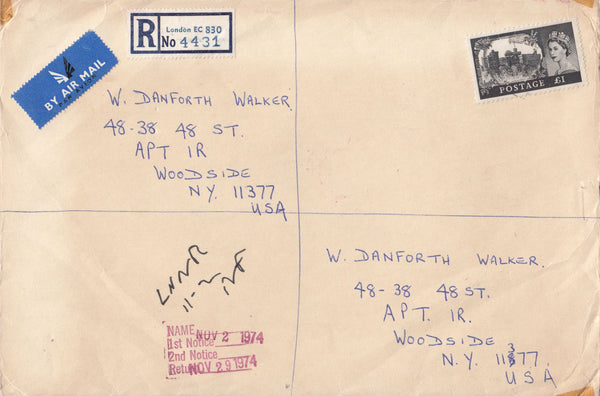 BY AIR MAIL
R London EC 830
No 4431
POSTAGE £1
W. DANFORTH WALKER
48-38 48 ST.
APT 1R
WOODSIDE
N.Y. 11377
USA
W. DANFORTH WALKER.
48-38 48 ST.
APT. 1R.
WOODSIDE
N.Y. 11377.
USA
11-2
NAME
1st Notice NOV 2 1974
2nd Notice
Return NOV 29 1974